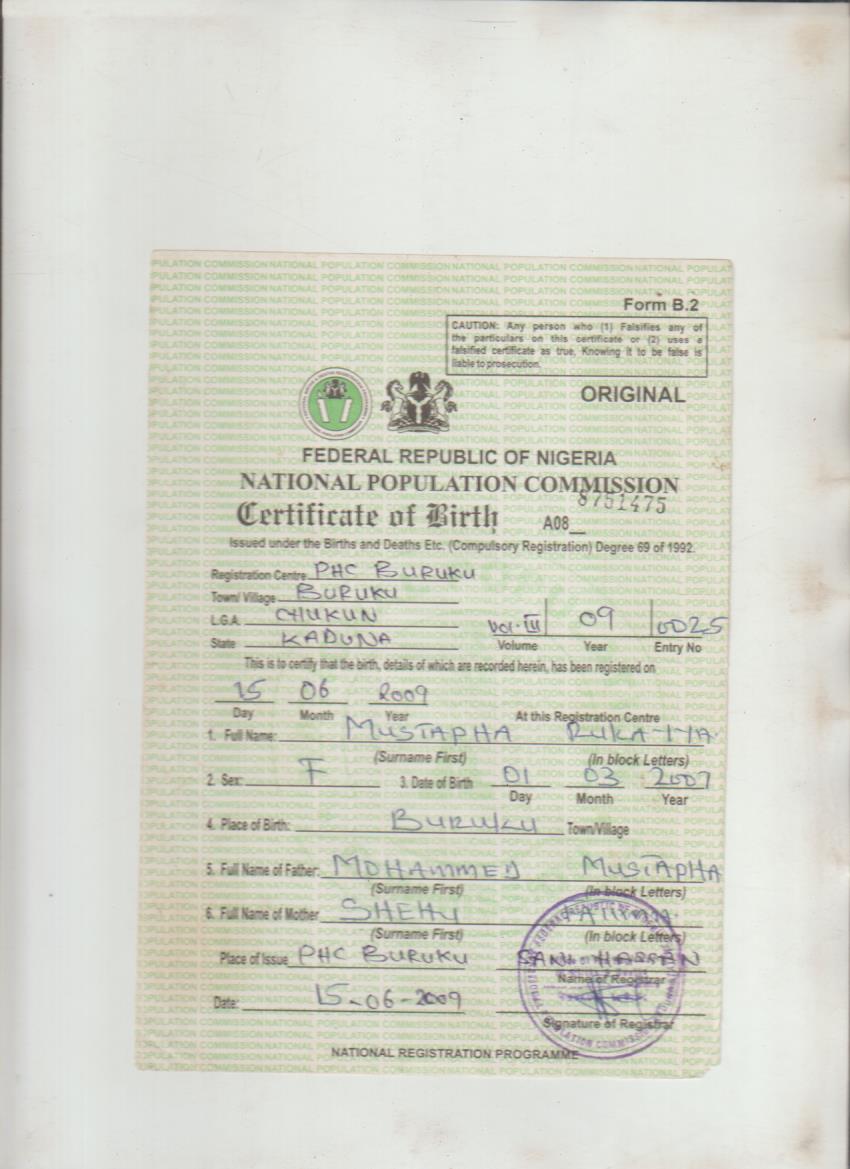 Form B.2
CAUTION: Any person who (1) Falsifies any of
the particulars on this certificate or (2) uses a
falsified certificate as true, Knowing it to be false is
liable to prosecution.
ORIGINAL
FEDERAL REPUBLIC OF NIGERIA
NATIONAL POPULATION COMMISSION
Certificate of Birth A08 8751475
Issued under the Births and Deaths Etc. (Compulsory Registration) Degree 69 of 1992.
Registration Centre PHC BURUKU
Town/ Village BURUKU
L.G.A. CHUKUN
State KADUNA
Vol. III 09 0025
Volume Year Entry No
This is to certify that the birth, details of which are recorded herein, has been registered on
15 06 2009
Day Month Year At this Registration Centre
1. Full Name: MUSTAPHA RUKAIYA
(Surname First) (In block Letters)
2. Sex: F 3. Date of Birth 01 03 2007
Day Month Year
4. Place of Birth: BURUKU Town/Village
5. Full Name of Father: MOHAMMED MUSTAPHA
(Surname First) (In block Letters)
6. Full Name of Mother SHEHU
(Surname First) (In block Letters)
Place of Issue PHC BURUKU SANI HASSAN
Name of Registrar
Date: 15-06-2009
Signature of Registrar
NATIONAL REGISTRATION PROGRAMME